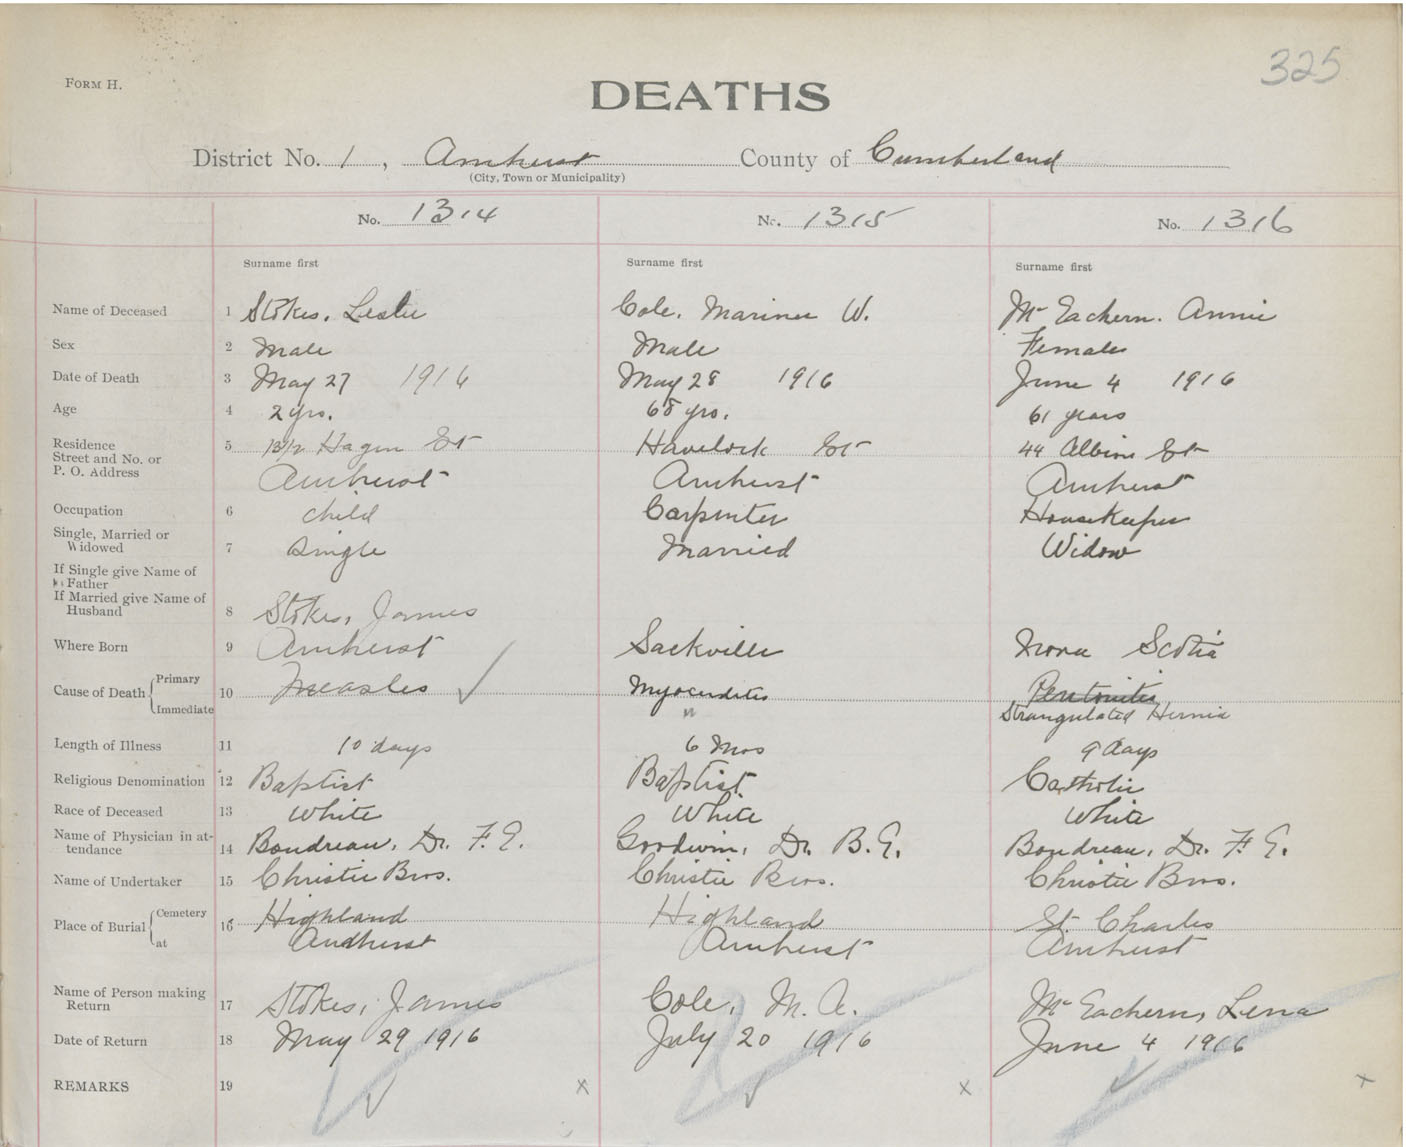 325
FORM H.
DEATHS
District No. 1, Amherst County of Cumberland
(City, Town or Municipality)
No. 1314 No. 1315 No. 1316
Surname first Surname first Surname first
Name of Deceased 1 Stokes, Leslie Cole, Mariner W. McEachern. Annie
Sex 2 Male Male Female
Date of Death 3 May 27 1916 May 28 1916 June 4 1916
Age 4 2 yrs. 68 yrs. 61 years
Residence 5 St Havelock St 44 Albion St
Street and No. or
P. O. Address Amherst Amherst Amherst
Occupation 6 child Carpenter Housekeeper
Single, Married or
Widowed 7 Single Married Widow
If Single give Name of
Father
If Married give Name of
Husband 8 Stokes, James
Where Born 9 Amherst Sackville Nova Scotia
Cause of Death Primary 10 Measles ✓ Myocarditis Peritonitis
Immediate " Strangulated Hernia
Length of Illness 11 10 days 6 Mos 9 days
Religious Denomination 12 Baptist Baptist Catholic
Race of Deceased 13 White White White
Name of Physician in at-
tendance 14 Boudreau, Dr. F. E. Goodwin, Dr. B. E. Boudreau, Dr. F. E.
Name of Undertaker 15 Christie Bros. Christie Bros. Christie Bros.
Place of Burial Cemetery 16 Highland Highland St. Charles
at Amherst Amherst Amherst
Name of Person making
Return 17 Stokes, James Cole, M. A. McEachern, Lena
Date of Return 18 May 29 1916 July 20 1916 June 4 1916
REMARKS 19 ✓ x ✓ x ✓ x